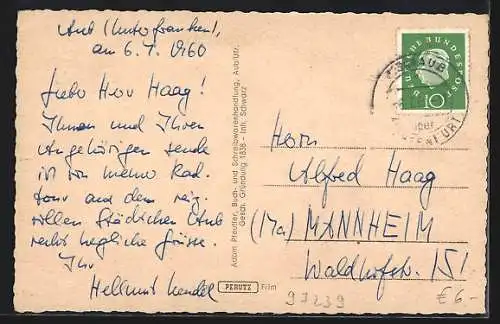 Aub (Unterfranken),
am 6. 7. 1960
Liebe Herr Haag!
Ihnen und Ihren
Angehörigen sende
ich von meiner Rad-
tour aus dem reiz-
vollen Städtchen Aub
recht herzliche Grüsse.
Ihr
Hellmut Hendel
Adam Pfeuffer, Buch- und Schreibwarenhandlung, Aub/Ufr.
Gesch. Gründung 1838 - Inh. Schwarz
PERUTZ Film
DEUTSCHE BUNDESPOST
10
AUB
über
OCHSENFURT
Herrn
Alfred Haag
(17a) MANNHEIM
Waldhofstr. 151
97239
€ 6.-